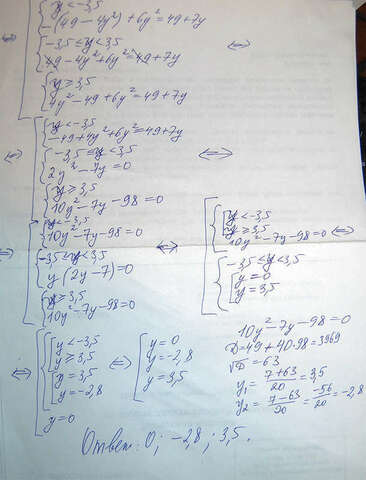 y < -3,5
-(49 - 4y²) + 6y² = 49 + 7y
⇔ -3,5 ≤ y < 3,5 ⇔
49 - 4y² + 6y² = 49 + 7y
y ≥ 3,5
4y² - 49 + 6y² = 49 + 7y
y < -3,5
-49 + 4y² + 6y² = 49 + 7y
⇔ -3,5 ≤ y < 3,5 ⇔
2y² - 7y = 0
y ≥ 3,5
10y² - 7y - 98 = 0
y < -3,5
10y² - 7y - 98 = 0
⇔ -3,5 ≤ y < 3,5 ⇔
y(2y - 7) = 0
y ≥ 3,5
10y² - 7y - 98 = 0
y < -3,5
y ≥ 3,5
10y² - 7y - 98 = 0 ⇔
-3,5 ≤ y < 3,5
y = 0
y = 3,5
⇔ y < -3,5
y ≥ 3,5
y = 3,5
y = -2,8
y = 0
⇔ y = 0
y = -2,8
y = 3,5
10y² - 7y - 98 = 0
D = 49 + 40·98 = 3969
√D = 63
y₁ = (7+63)/20 = 3,5
y₂ = (7-63)/20 = -56/20 = -2,8
Ответ: 0; -2,8; 3,5.